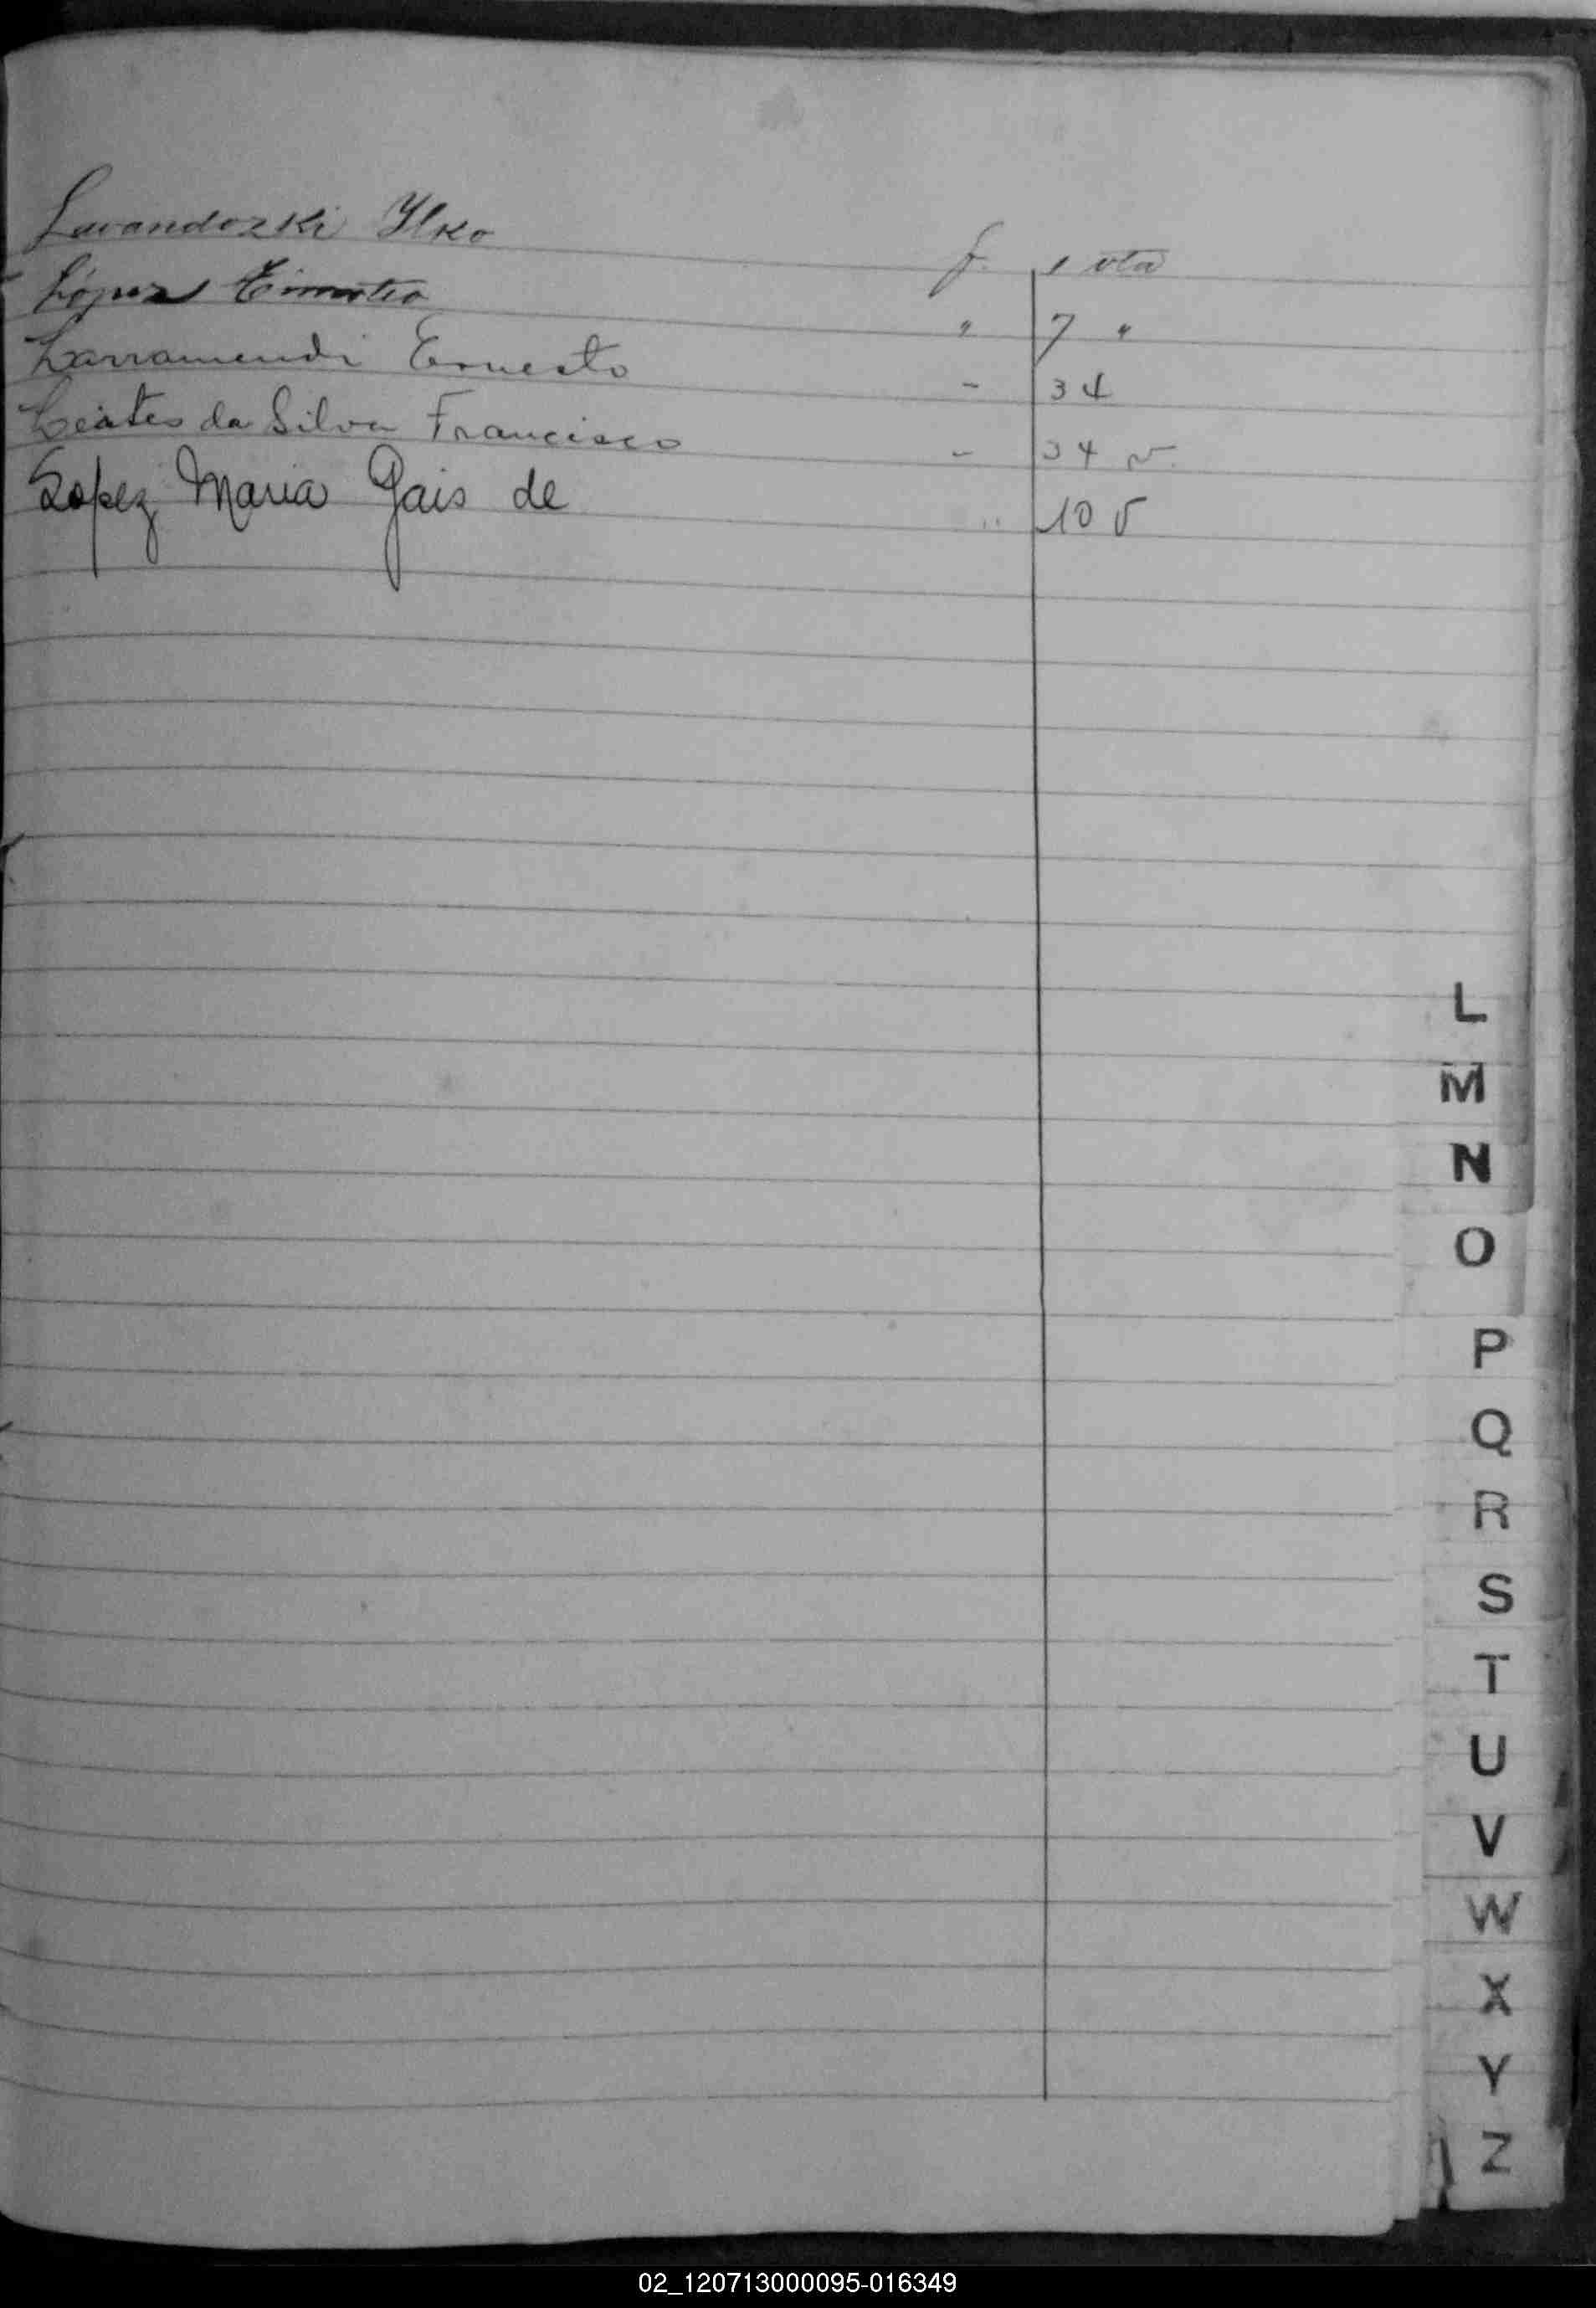 Lewandozki Ilko f. 1 vta
López Timoteo " 7 "
Larramendi Ernesto - 34
da Silva Francisco - 34 v.
Lopez Maria Gais de " 10 v
L
M
N
O
P
Q
R
S
T
U
V
W
X
Y
Z
02_120713000095-016349